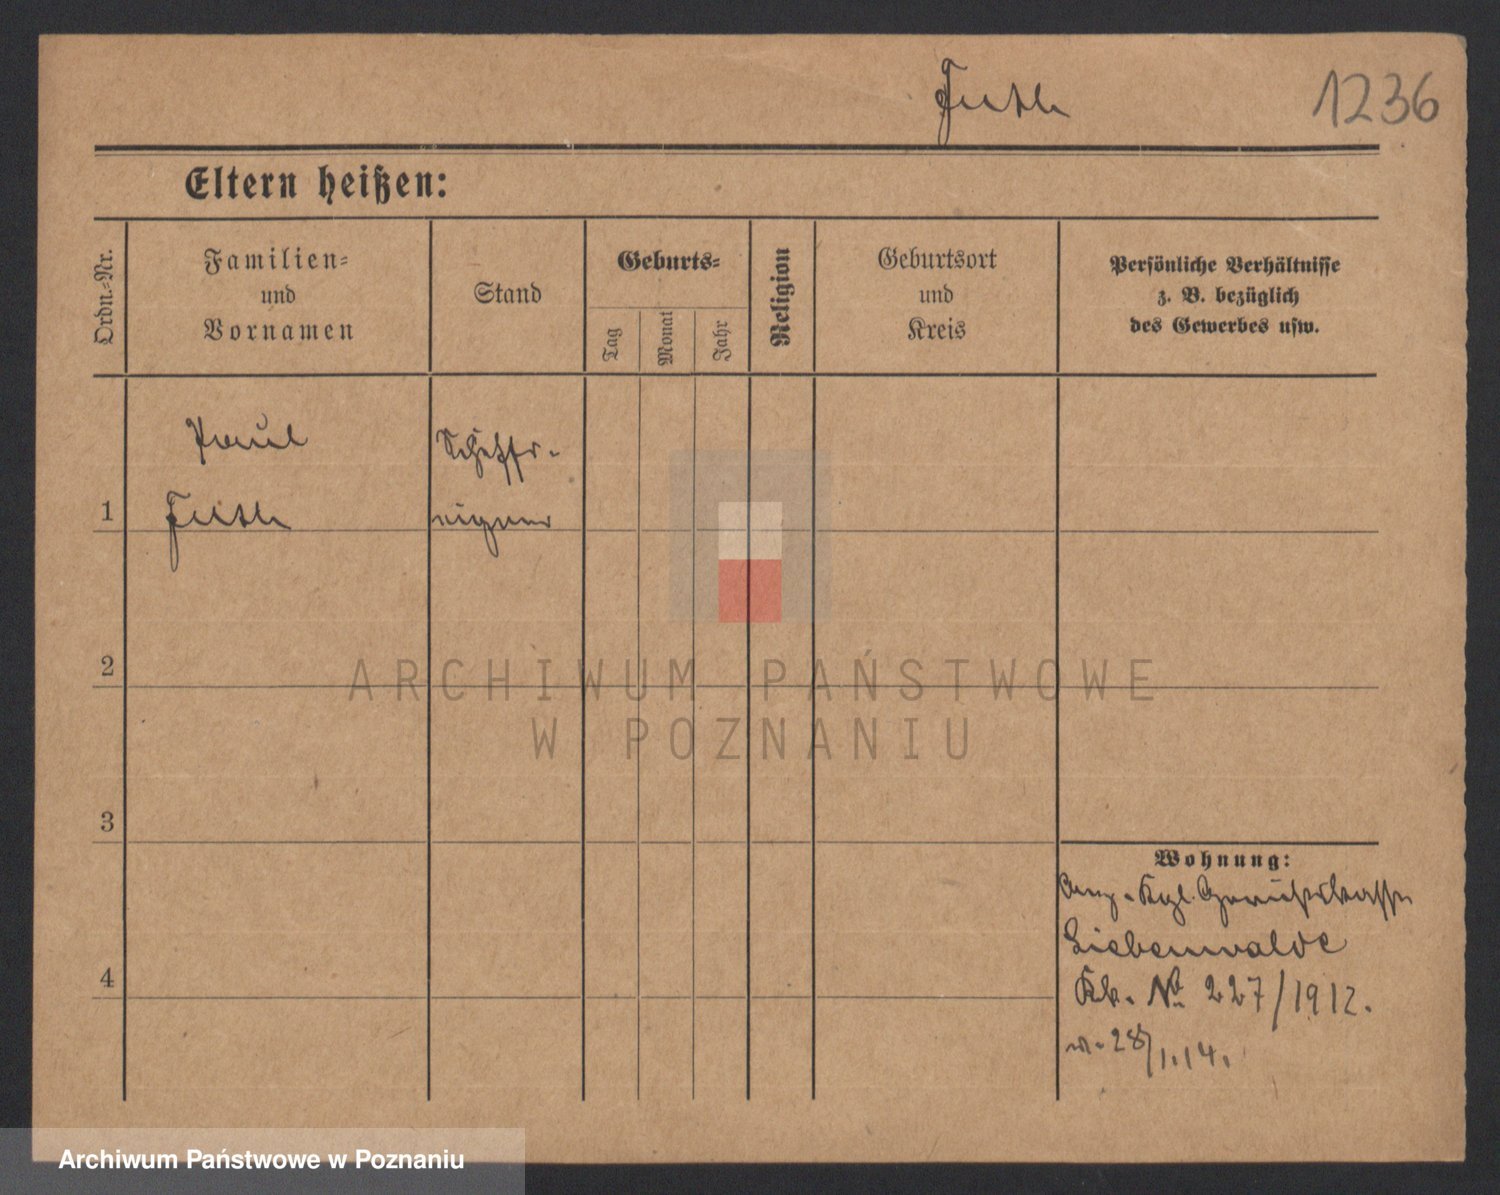 Futh
1236
Eltern heißen:
Ordn.-Nr.
Familien-
und
Vornamen
Stand
Geburts-
Tag
Monat
Jahr
Religion
Geburtsort
und
Kreis
Persönliche Verhältnisse
z. B. bezüglich
des Gewerbes usw.
Paul
Schiffs-
1
Futh
eigner
2
ARCHIWUM PAŃSTWOWE
W POZNANIU
3
Wohnung:
Kgl. Gerichtskasse
Liebenwalde
4
Kb. No 227/1912.
v. 28/1.14.
Archiwum Państwowe w Poznaniu